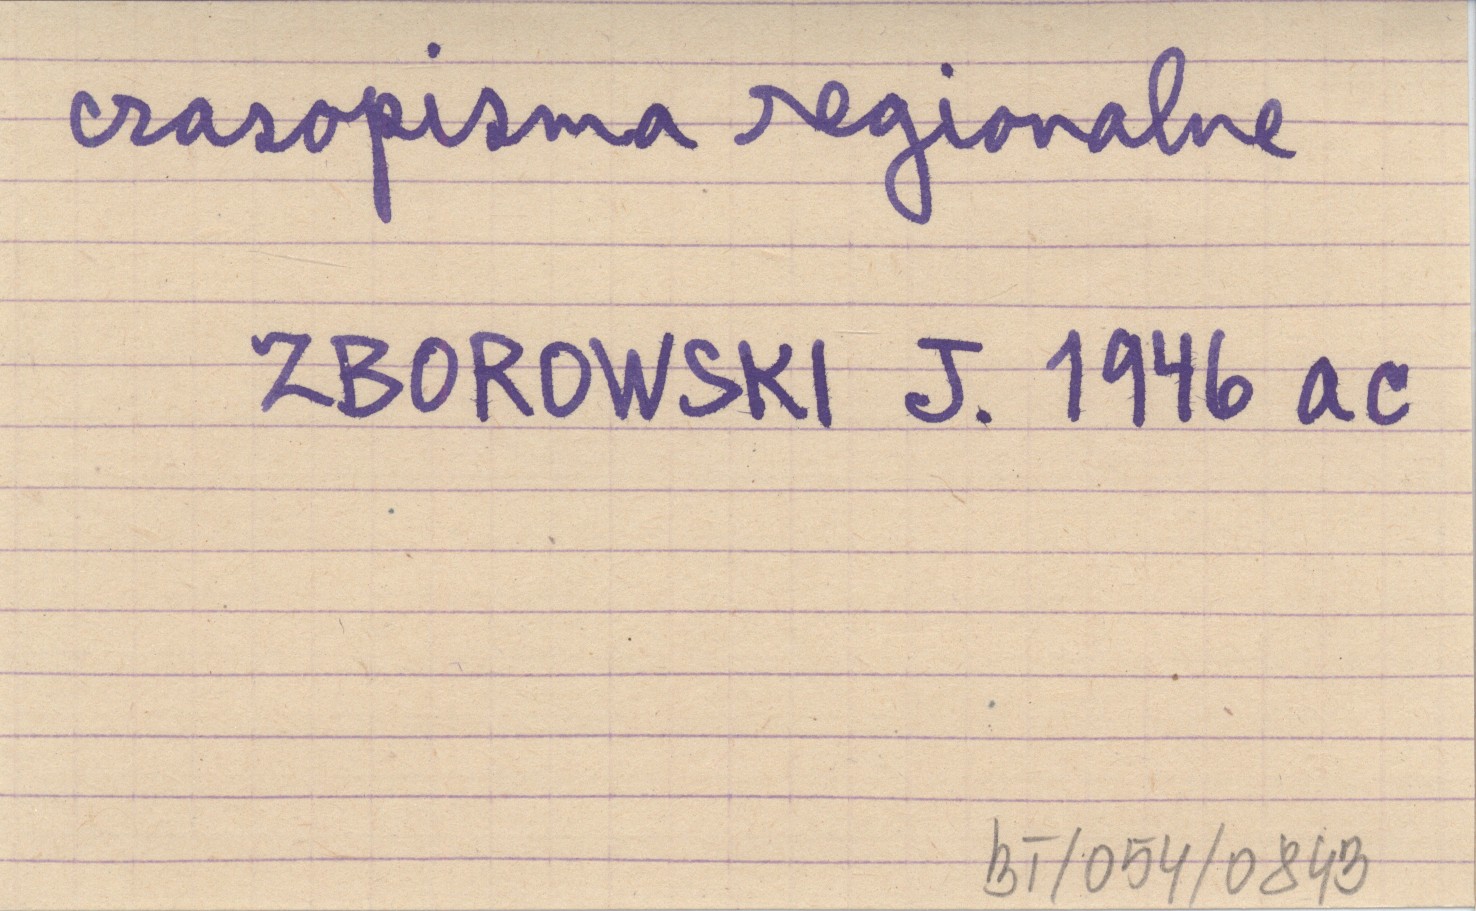 czasopisma regionalne
ZBOROWSKI J. 1946 ac
BI/054/0843